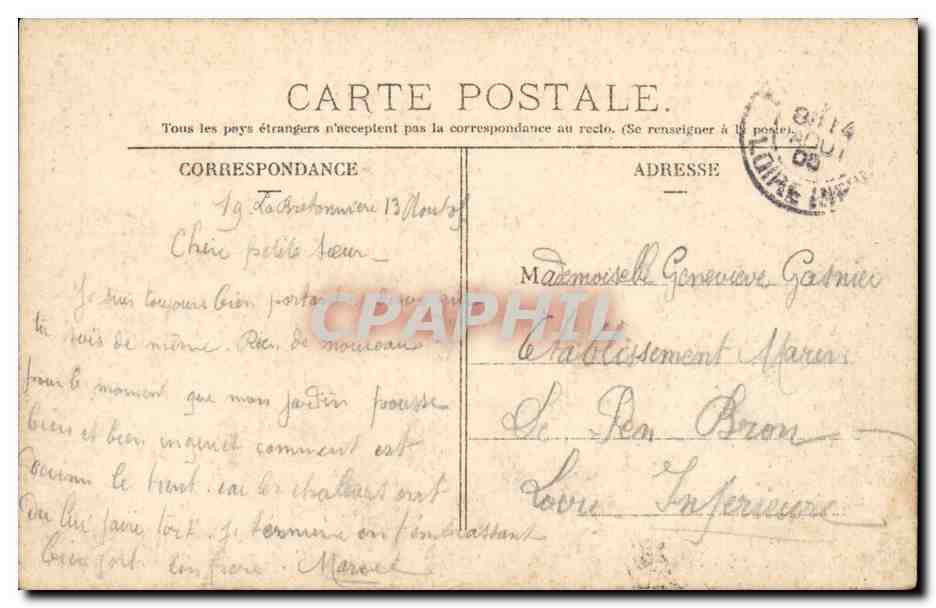 CARTE POSTALE.
Tous les pays étrangers n'acceptent pas la correspondance au recto. (Se renseigner à la poste).
CORRESPONDANCE
La Bretonnière 13 Aout
Chère petite sœur _
Je suis toujours bien portant
tu sois de même. Rien de nouveau
pour le moment que mon jardin pousse
bien et bien inquiet comment est
le car les chaleurs ont
du lui faire tort. Je termine en t'embrassant
bien fort. ton frère. Marcel
ADRESSE
Mademoiselle Geneviève Gasnier
Etablissement Marin
de Pen Bron
Loire Inférieure
14
AOUT
LOIRE INF
CPAPHIL